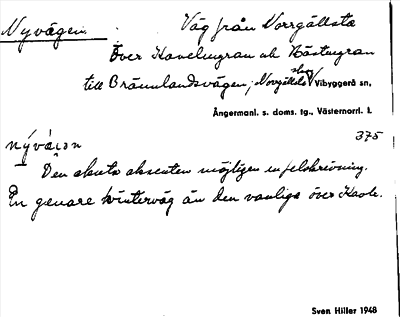 Nyvägen. Väg från Norrgällsta
över Kavelmyran och Nästmyran
till Brännlandsvägen, Norrgällsta skog Vibyggerå sn,
Ångermanl. s. doms. tg., Västernorrl. l.
375
nývä̀ɜn
Den akuta aksenten möjligen en felskrivning.
En genare vinterväg än den vanliga över Kaste.
Sven Hiller 1948